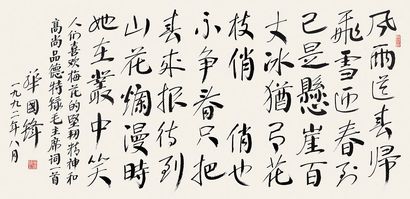 风雨送春歸
飛雪迎春到
已是懸崖百
丈冰猶有花
枝俏俏也
不争春只把
春來报待到
山花爛漫時
她在叢中笑
人们喜欢梅花的坚韧精神和
高尚品德特録毛主席词一首
華國鋒
一九九二年八月